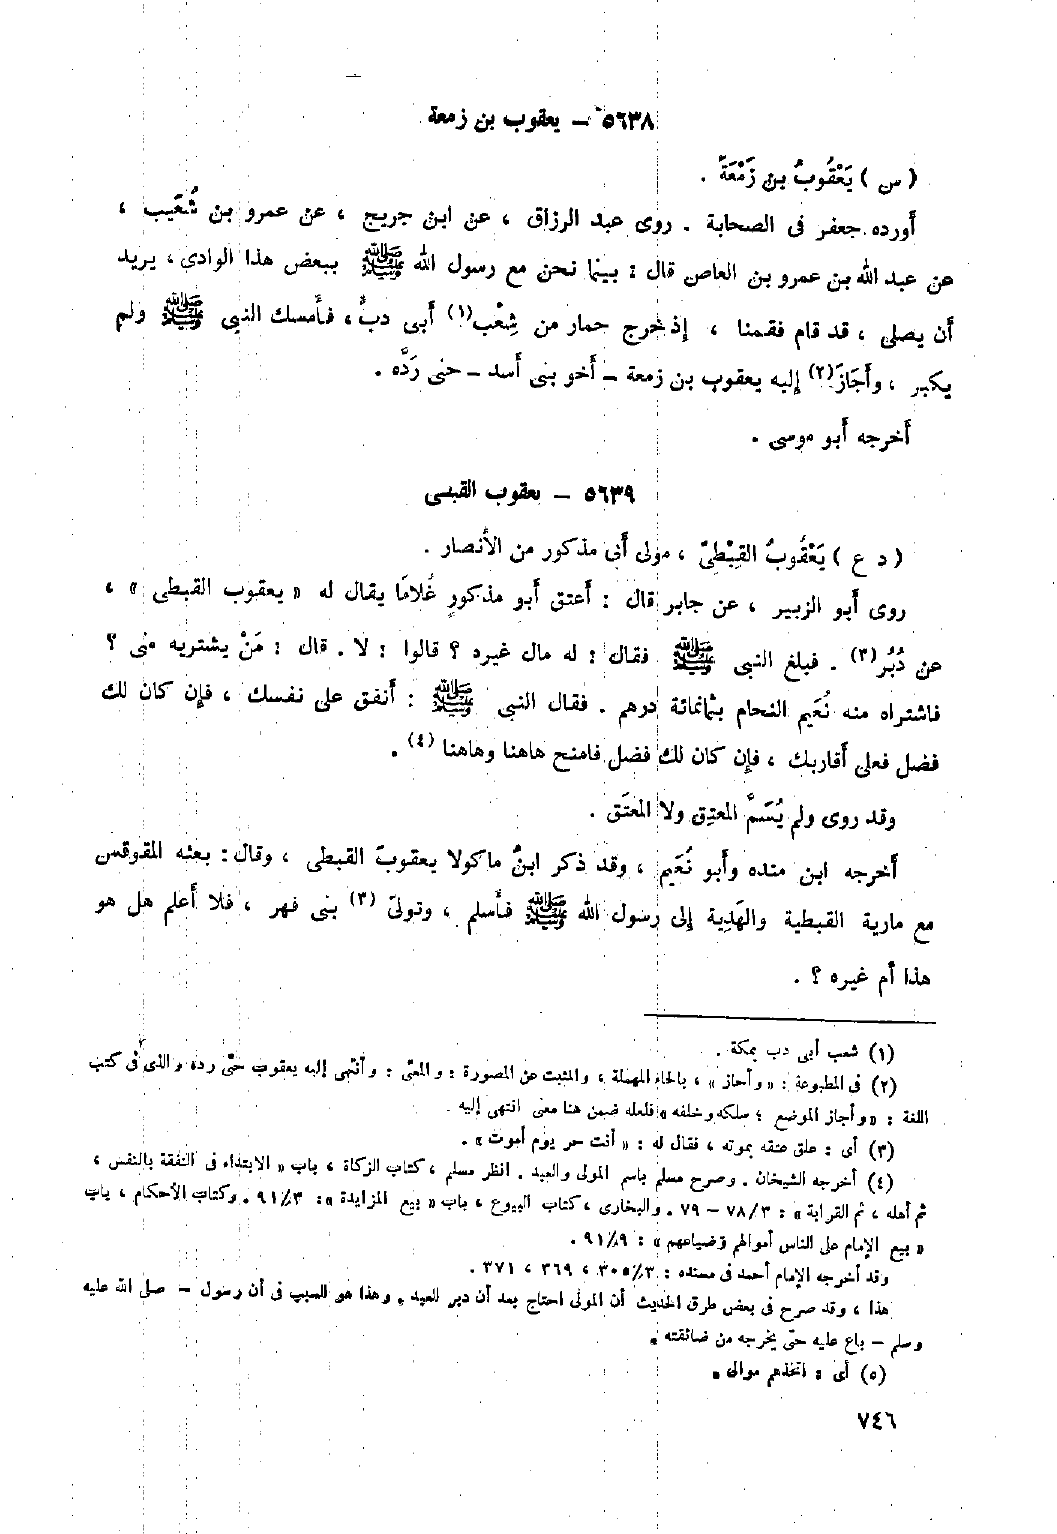 ٥٦٣٨ – يعقوب بن زمعة
( س ) يَعْقُوبُ بن زَمْعَةَ .
أورده جعفر فى الصحابة . روى عبد الرزاق ، عن ابن جريج ، عن عمرو بن شُعَيب ،
عن عبد الله بن عمرو بن العاص قال : بينما نحن مع رسول الله ﷺ ببعض هذا الوادى ، يريد
أن يصلى ، قد قام فقمنا ، إذ خرج حمار من شِعْب(١) أبى دبٌّ ، فأمسك النبى ﷺ ولم
يكبر ، وأجَازَ(٢) إليه يعقوب بن زمعة – أخو بنى أسد – حتى رَدَّه .
أخرجه أبو موسى .
٥٦٣٩ – يعقوب القبطى
( د ع ) يَعْقُوبُ القِبْطِىّ ، مولى أبى مذكور من الأنصار .
روى أبو الزبير ، عن جابر قال : أعتق أبو مذكورٍ غُلامًا يقال له « يعقوب القبطى » ،
عن دُبُر(٣) . فبلغ النبى ﷺ فقال : له مال غيره ؟ قالوا : لا . قال : مَنْ يشتريه منى ؟
فاشتراه منه نُعَيم النحام بثمانمائة درهم . فقال النبى ﷺ : أنفق على نفسك ، فإن كان لك
فضل فعلى أقاربك ، فإن كان لك فضل فامنح هاهنا وهاهنا (٤) .
وقد روى ولم يُسَمَّ المعتِق ولا المعتَق .
أخرجه ابن منده وأبو نُعَيم ، وقد ذكر ابنُ ماكولا يعقوبَ القبطى ، وقال : بعثه المقوقس
مع مارية القبطية والهَدِية إلى رسول الله ﷺ فأسلم ، وتولىّ (٣) بنى فهر ، فلا أعلم هل هو
هذا أم غيره ؟ .
(١) شعب أبى دب بمكة .
(٢) فى المطبوعة : « وأحاز » ، بالحاء المهملة ، والمثبت عن المصورة : والمعنى : وانتهى إليه يعقوب حتى رده والذى فى كتب
اللغة : « وأجاز الموضع : سلكه وخلفه » فلعله ضمن هنا معنى انتهى إليه .
(٣) أى : علق عتقه بموته ، فقال له : « أنت حر يوم أموت » .
(٤) أخرجه الشيخان . وصرح مسلم باسم المولى والعبد . انظر مسلم ، كتاب الزكاة ، باب « الابتداء فى النفقة بالنفس ،
ثم أهله ، ثم القرابة » : ٧٨/٣ – ٧٩ . والبخارى ، كتاب البيوع ، باب « بيع المزايدة » : ٩١/٣ . وكتاب الأحكام ، باب
« بيع الإمام على الناس أموالهم وضياعهم » : ٩١/٩ .
وقد أخرجه الإمام أحمد فى مسنده : ٣٠٥/٣ ، ٣٦٩ ، ٣٧١ .
هذا ، وقد صرح فى بعض طرق الحديث أن المولى احتاج بعد أن دبر العبد . وهذا هو السبب فى أن رسول – صلى الله عليه
وسلم – باع عليه حتى يخرجه من ضائقته .
(٥) أى : اتخذهم موالى .
٧٤٦